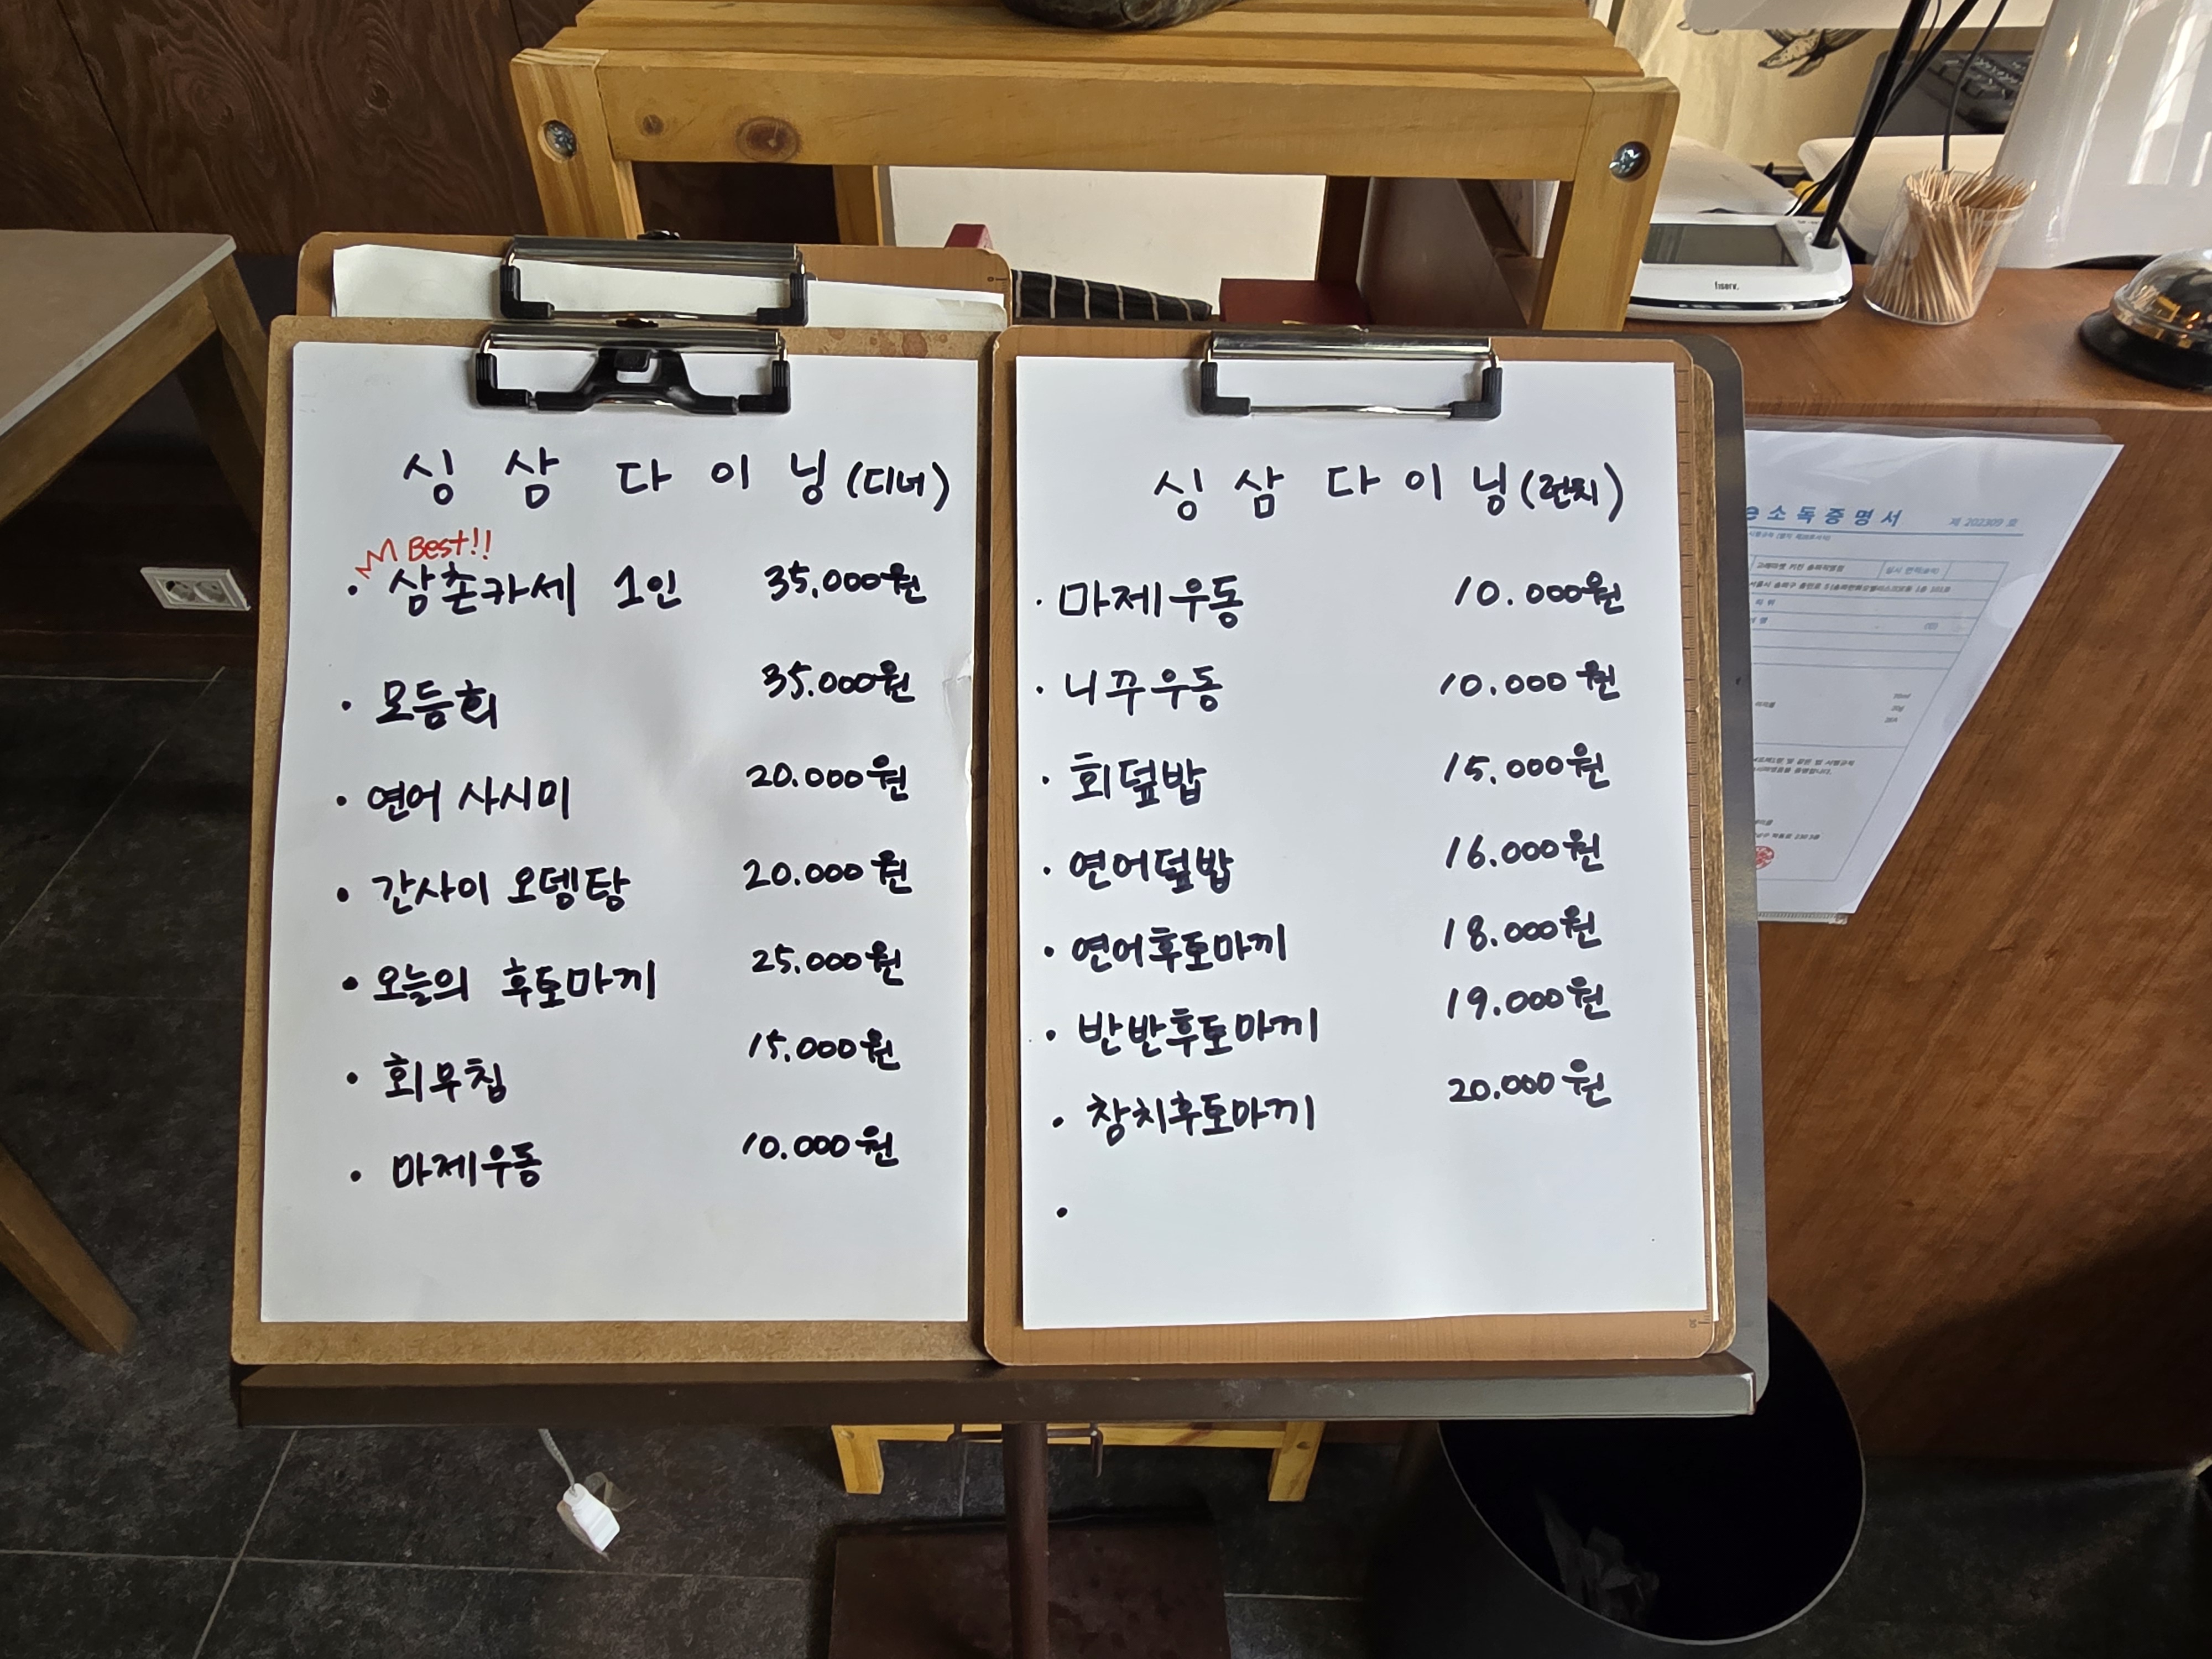 싱 삼 다 이 닝 (디너)
Best!!
· 삼촌카세 1인 35.000원
· 모듬회 35.000원
· 연어 사시미 20.000원
· 간사이 오뎅탕 20.000원
· 오늘의 후토마끼 25.000원
· 회무침 15.000원
· 마제우동 10.000원
싱 삼 다 이 닝 (런치)
· 마제우동 10.000원
· 니꾸우동 10.000원
· 회덮밥 15.000원
· 연어덮밥 16.000원
· 연어후토마끼 18.000원
· 반반후토마끼 19.000원
· 참치후토마끼 20.000원
·
fiserv.
e소독증명서
제 202309 호